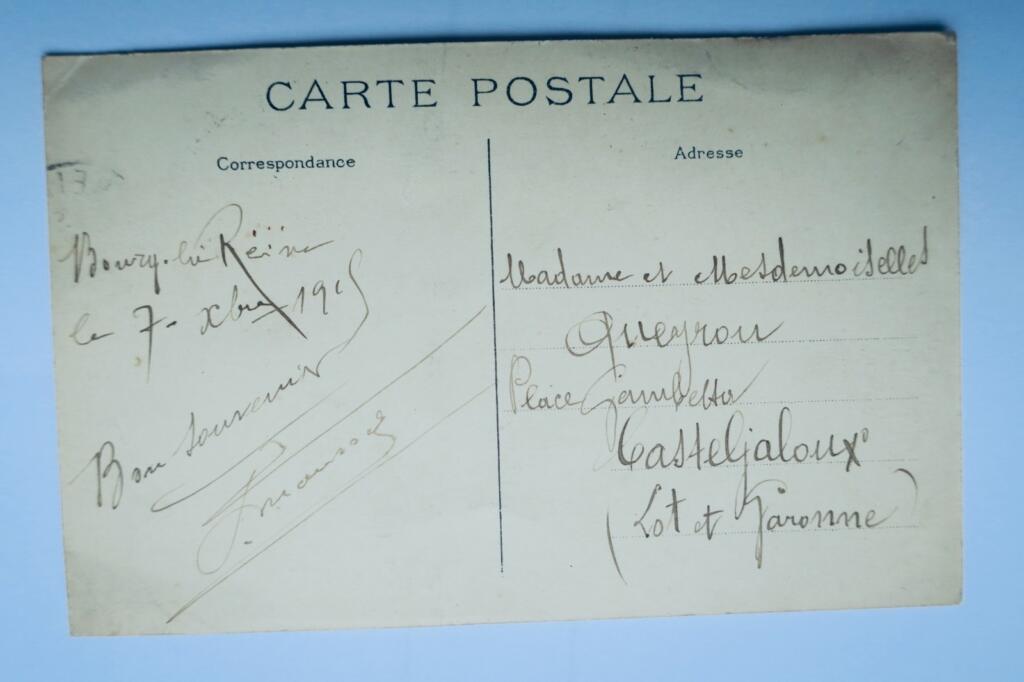 CARTE POSTALE
Correspondance
Bourg-la-Reine
le 7- xbre 1915
Bon souvenir
Adresse
Madame et Mesdemoiselles
Queyrou
Place Gambetta
Casteljaloux
(Lot et Garonne)